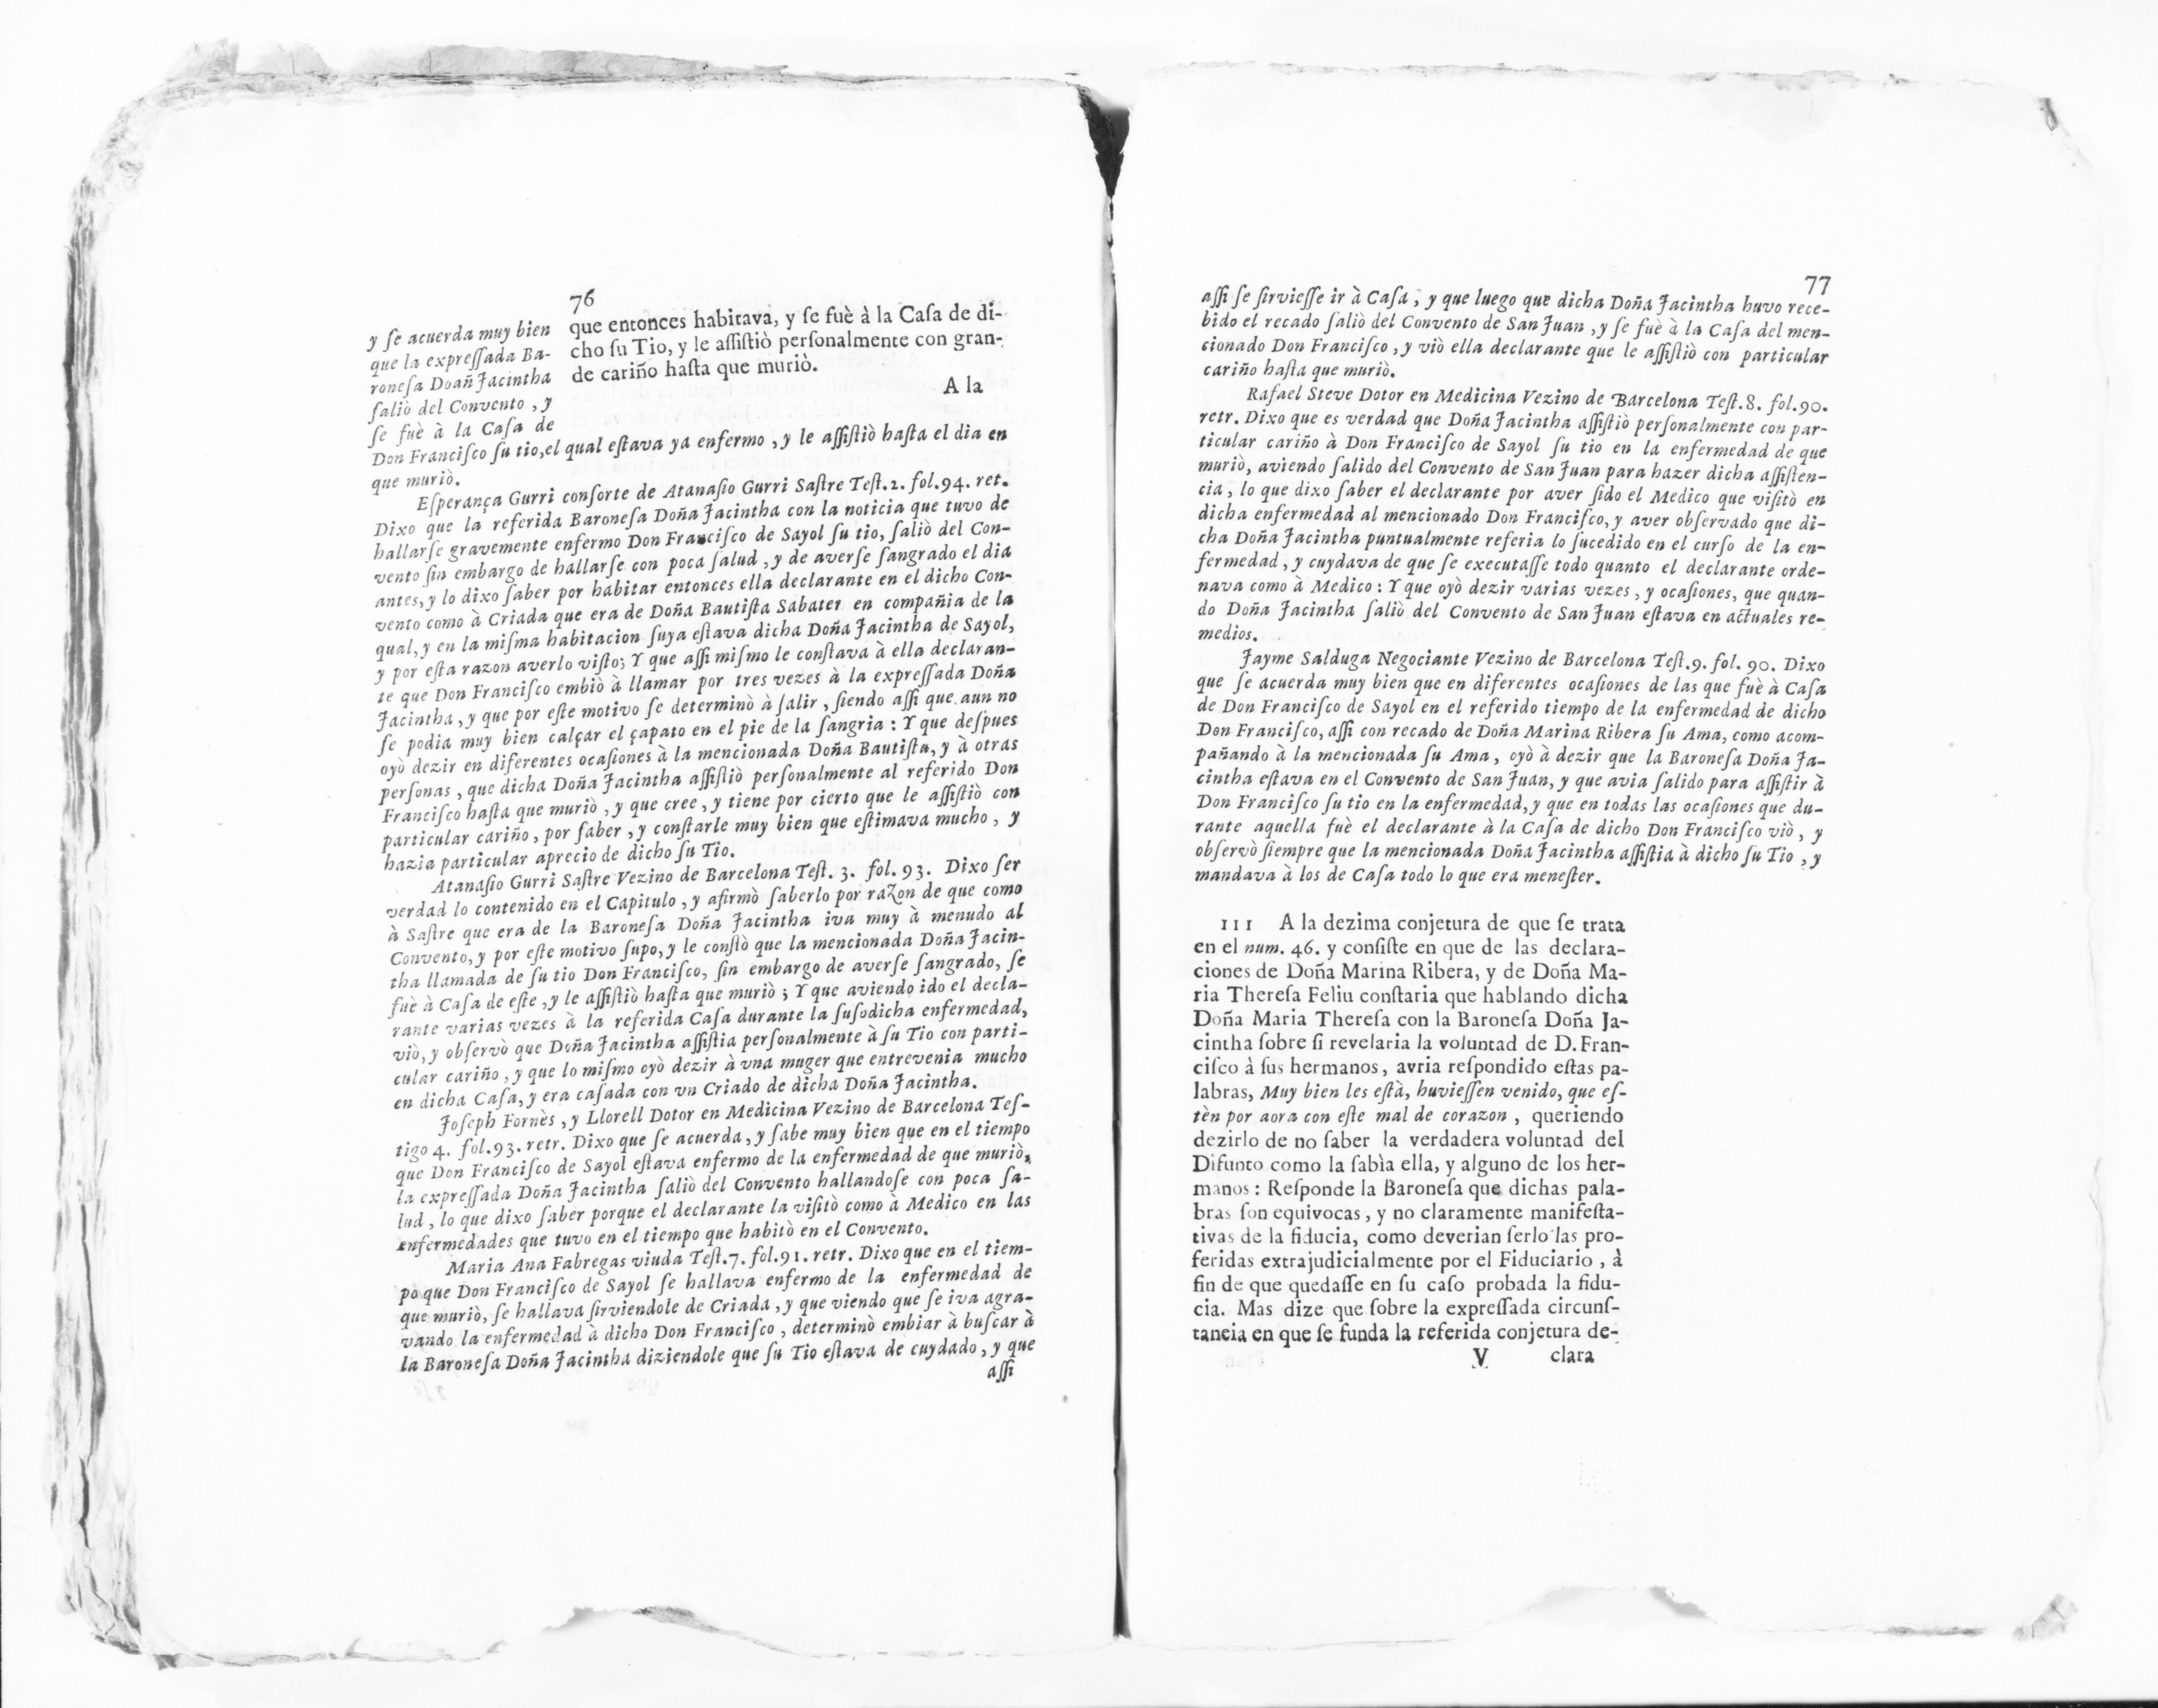 76
que entonces habitava, y ſe fuè à la Caſa de di-
cho ſu Tio, y le aſſiſtiò perſonalmente con gran-
de cariño haſta que muriò.
A la
y ſe acuerda muy bien
que la expreſſada Ba-
roneſa Doañ Jacintha
ſaliò del Convento, y
ſe fuè à la Caſa de
Don Franciſco ſu tio, el qual eſtava ya enfermo, y le aſſiſtiò haſta el dia en
que muriò.
Eſperança Gurri conſorte de Atanaſio Gurri Saſtre Teſt. 2. fol. 94. ret.
Dixo que la referida Baroneſa Doña Jacintha con la noticia que tuvo de
hallarſe gravemente enfermo Don Franciſco de Sayol ſu tio, ſaliò del Con-
vento ſin embargo de hallarſe con poca ſalud, y de averſe ſangrado el dia
antes, y lo dixo ſaber por habitar entonces ella declarante en el dicho Con-
vento como à Criada que era de Doña Bautiſta Sabater en compañia de la
qual, y en la miſma habitacion ſuya eſtava dicha Doña Jacintha de Sayol,
y por eſta razon averlo viſto; Y que aſſi miſmo le conſtava à ella declaran-
te que Don Franciſco embiò à llamar por tres vezes à la expreſſada Doña
Jacintha, y que por eſte motivo ſe determinò à ſalir, ſiendo aſſi que aun no
ſe podia muy bien calçar el çapato en el pie de la ſangria: Y que deſpues
oyò dezir en diferentes ocaſiones à la mencionada Doña Bautiſta, y à otras
perſonas, que dicha Doña Jacintha aſſiſtiò perſonalmente al referido Don
Franciſco haſta que muriò, y que cree, y tiene por cierto que le aſſiſtiò con
particular cariño, por ſaber, y conſtarle muy bien que eſtimava mucho, y
hazia particular aprecio de dicho ſu Tio.
Atanaſio Gurri Saſtre Vezino de Barcelona Teſt. 3. fol. 93. Dixo ſer
verdad lo contenido en el Capitulo, y afirmò ſaberlo por razon de que como
à Saſtre que era de la Baroneſa Doña Jacintha iva muy à menudo al
Convento, y por eſte motivo ſupo, y le conſtò que la mencionada Doña Jacin-
tha llamada de ſu tio Don Franciſco, ſin embargo de averſe ſangrado, ſe
fuè à Caſa de eſte, y le aſſiſtiò haſta que muriò; Y que aviendo ido el decla-
rante varias vezes à la referida Caſa durante la ſuſodicha enfermedad,
viò, y obſervò que Doña Jacintha aſſiſtia perſonalmente à ſu Tio con parti-
cular cariño, y que lo miſmo oyò dezir à vna muger que entrevenia mucho
en dicha Caſa, y era caſada con vn Criado de dicha Doña Jacintha.
Joſeph Fornès, y Llorell Dotor en Medicina Vezino de Barcelona Teſ-
tigo 4. fol. 93. retr. Dixo que ſe acuerda, y ſabe muy bien que en el tiempo
que Don Franciſco de Sayol eſtava enfermo de la enfermedad de que muriò,
la expreſſada Doña Jacintha ſaliò del Convento hallandoſe con poca ſa-
lud, lo que dixo ſaber porque el declarante la viſitò como à Medico en las
enfermedades que tuvo en el tiempo que habitò en el Convento.
Maria Ana Fabregas viuda Teſt. 7. fol. 91. retr. Dixo que en el tiem-
po que Don Franciſco de Sayol ſe hallava enfermo de la enfermedad de
que muriò, ſe hallava ſirviendole de Criada, y que viendo que ſe iva agra-
vando la enfermedad à dicho Don Franciſco, determinò embiar à buſcar à
la Baroneſa Doña Jacintha diziendole que ſu Tio eſtava de cuydado, y que
aſſi
77
aſſi ſe ſirvieſſe ir à Caſa, y que luego que dicha Doña Jacintha huvo rece-
bido el recado ſaliò del Convento de San Juan, y ſe fuè à la Caſa del men-
cionado Don Franciſco, y viò ella declarante que le aſſiſtiò con particular
cariño haſta que muriò.
Rafael Steve Dotor en Medicina Vezino de Barcelona Teſt. 8. fol. 90.
retr. Dixo que es verdad que Doña Jacintha aſſiſtiò perſonalmente con par-
ticular cariño à Don Franciſco de Sayol ſu tio en la enfermedad de que
muriò, aviendo ſalido del Convento de San Juan para hazer dicha aſſiſten-
cia, lo que dixo ſaber el declarante por aver ſido el Medico que viſitò en
dicha enfermedad al mencionado Don Franciſco, y aver obſervado que di-
cha Doña Jacintha puntualmente referia lo ſucedido en el curſo de la en-
fermedad, y cuydava de que ſe executaſſe todo quanto el declarante orde-
nava como à Medico: Y que oyò dezir varias vezes, y ocaſiones, que quan-
do Doña Jacintha ſaliò del Convento de San Juan eſtava en actuales re-
medios.
Jayme Salduga Negociante Vezino de Barcelona Teſt. 9. fol. 90. Dixo
que ſe acuerda muy bien que en diferentes ocaſiones de las que fuè à Caſa
de Don Franciſco de Sayol en el referido tiempo de la enfermedad de dicho
Don Franciſco, aſſi con recado de Doña Marina Ribera ſu Ama, como acom-
pañando à la mencionada ſu Ama, oyò à dezir que la Baroneſa Doña Ja-
cintha eſtava en el Convento de San Juan, y que avia ſalido para aſſiſtir à
Don Franciſco ſu tio en la enfermedad, y que en todas las ocaſiones que du-
rante aquella fuè el declarante à la Caſa de dicho Don Franciſco viò, y
obſervò ſiempre que la mencionada Doña Jacintha aſſiſtia à dicho ſu Tio, y
mandava à los de Caſa todo lo que era meneſter.
111 A la dezima conjetura de que ſe trata
en el num. 46. y conſiſte en que de las declara-
ciones de Doña Marina Ribera, y de Doña Ma-
ria Thereſa Feliu conſtaria que hablando dicha
Doña Maria Thereſa con la Baroneſa Doña Ja-
cintha ſobre ſi revelaria la voluntad de D. Fran-
ciſco à ſus hermanos, avria reſpondido eſtas pa-
labras, Muy bien les eſtà, huvieſſen venido, que eſ-
tèn por aora con eſte mal de corazon, queriendo
dezirlo de no ſaber la verdadera voluntad del
Difunto como la ſabìa ella, y alguno de los her-
manos: Reſponde la Baroneſa que dichas pala-
bras ſon equivocas, y no claramente manifeſta-
tivas de la fiducia, como deverian ſerlo las pro-
feridas extrajudicialmente por el Fiduciario, à
fin de que quedaſſe en ſu caſo probada la fidu-
cia. Mas dize que ſobre la expreſſada circunſ-
tancia en que ſe funda la referida conjetura de-
V clara